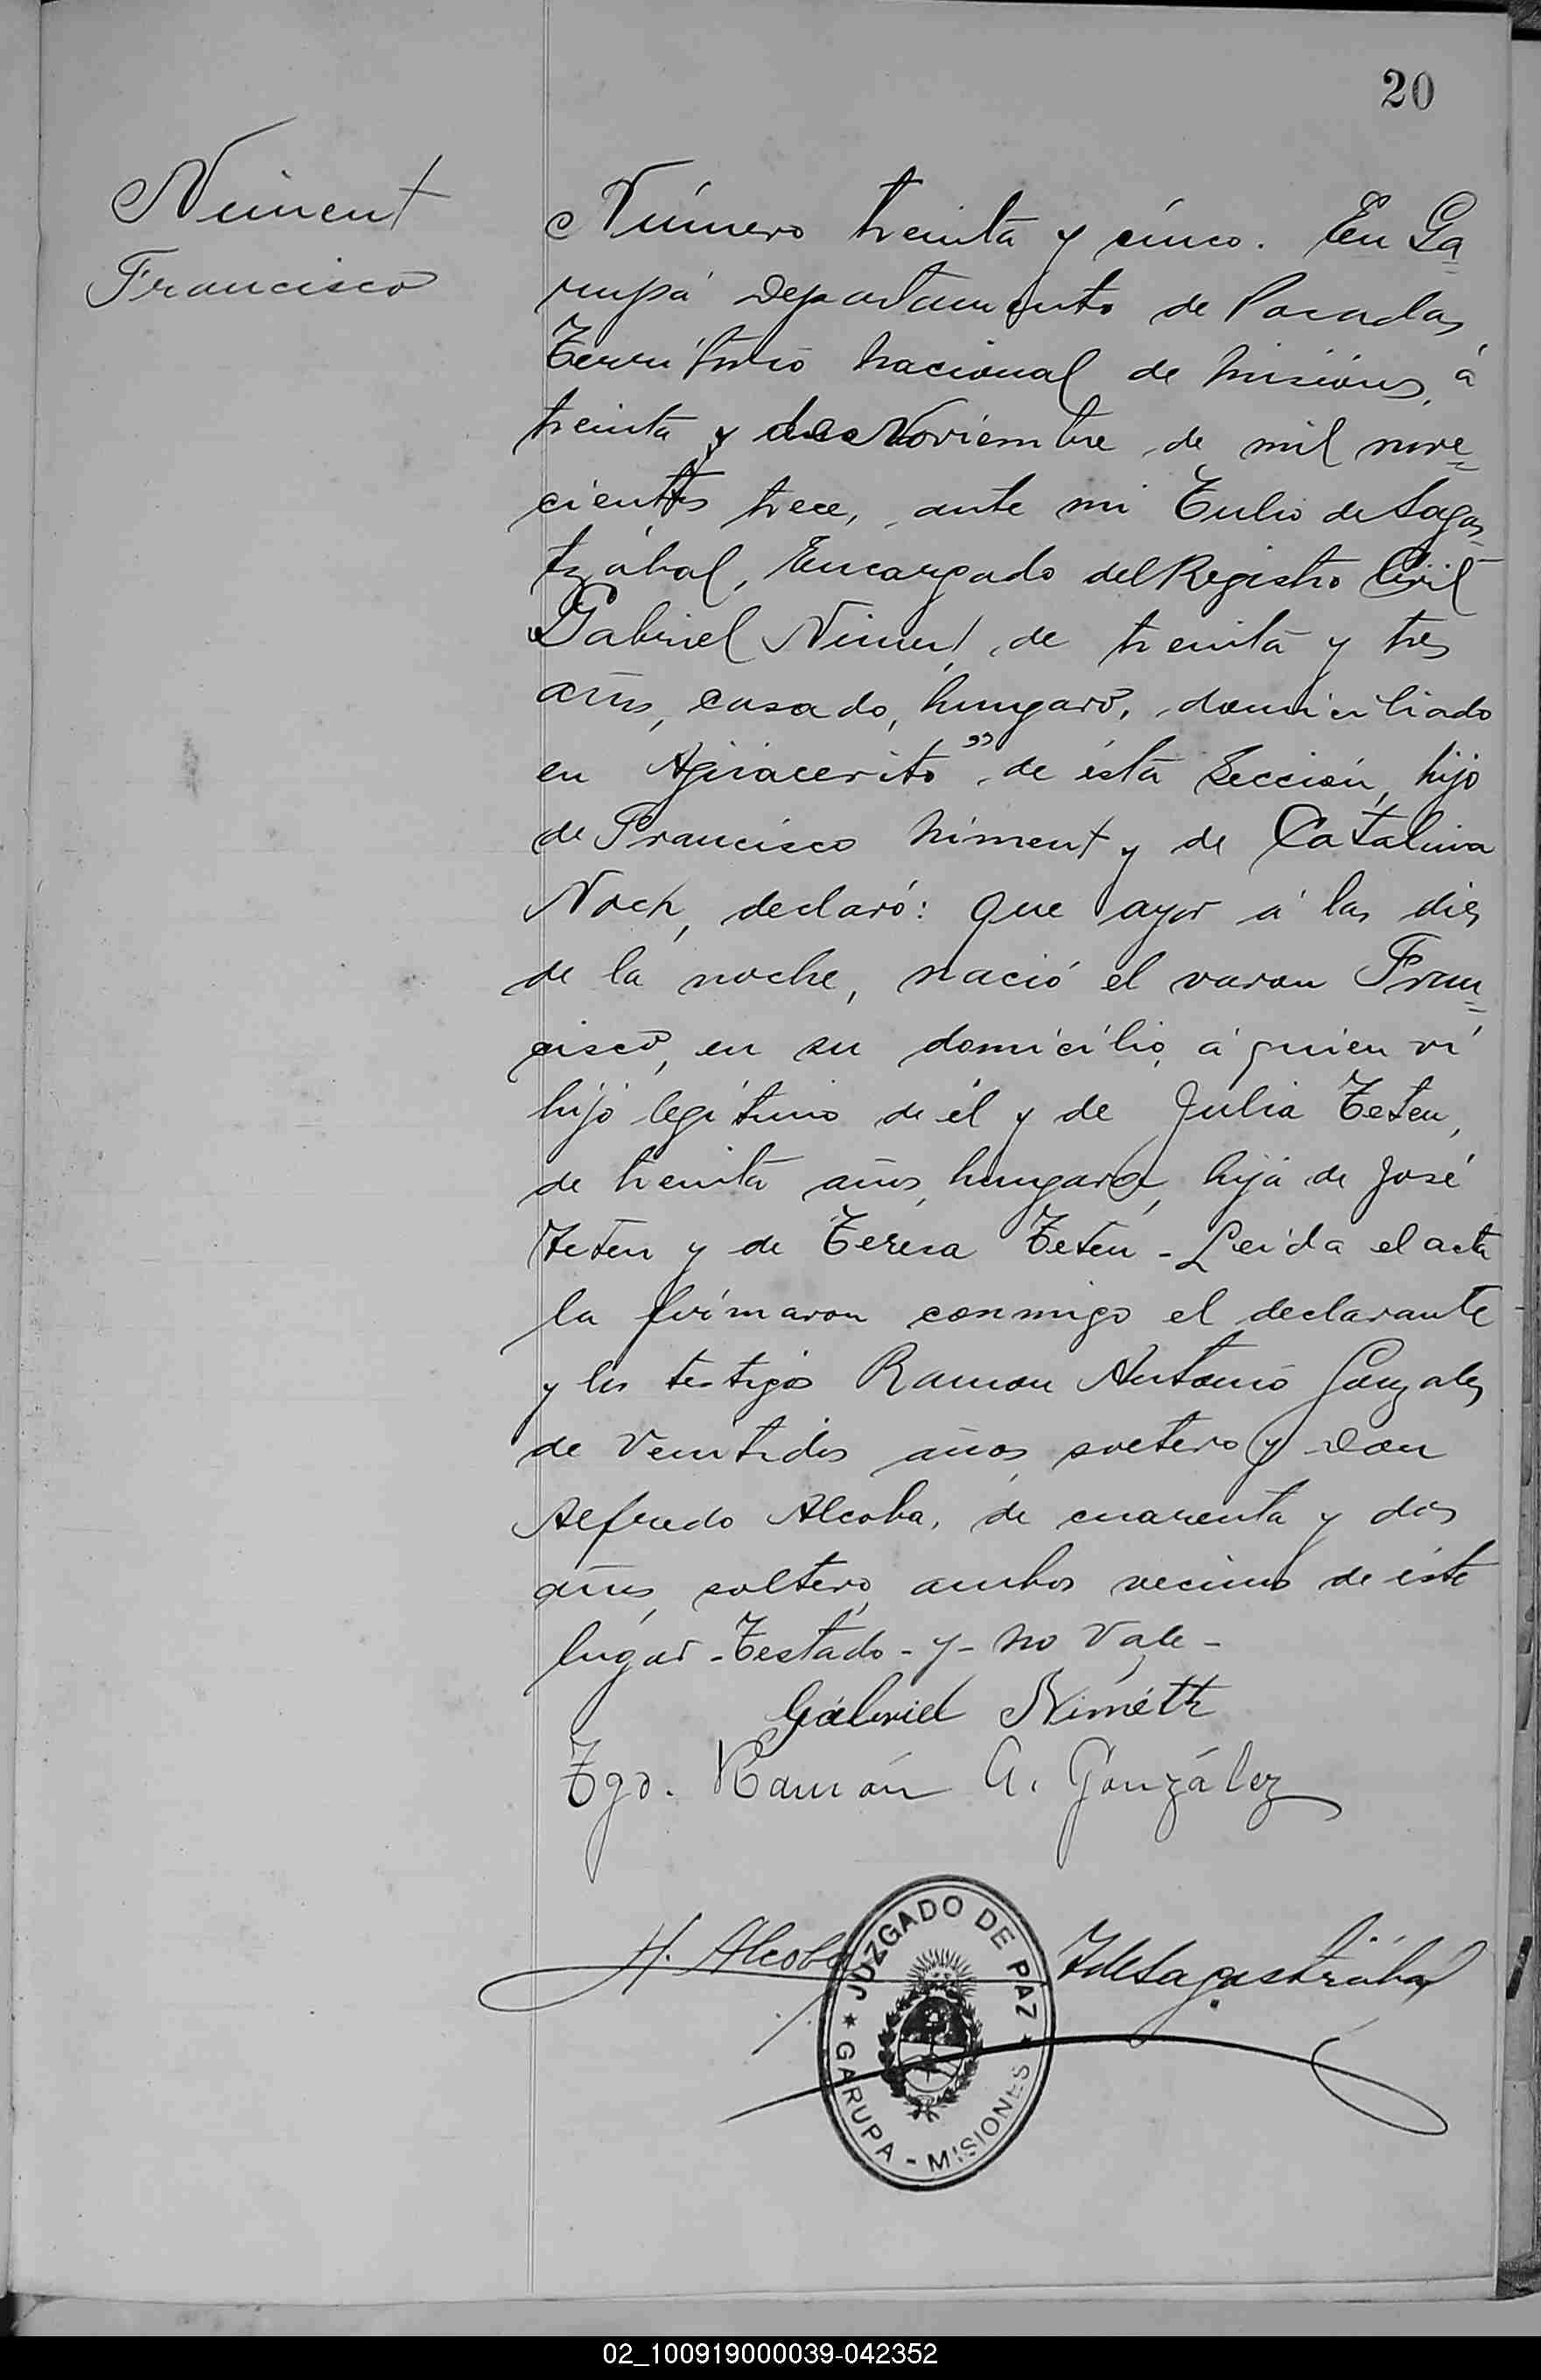 20
Niment
Francisco
Número treinta y cinco. En Ga=
rupá Departamento de Posadas,
Territorio Nacional de Misiones, á
treinta y de Noviembre de mil nove=
cientos trece, ante mi Tulio de Sagas
tizábal, Encargado del Registro Civil
Gabriel Niment, de treinta y tres
años, casado, hungaro, domiciliado
en Apiacerito" de ésta Sección, hijo
de Francisco Niment y de Catalina
Noch, declaró: Que ayer á las diez
de la noche, nació el varon Fran=
cisco, en su domicilio, á quien ví
hijo legitimo de él y de Julia Teten,
de treinta años, hungara, hija de José
Teten y de Teresa Teten - Leida el acta
la firmaron conmigo el declarante
y los testigos Ramon Antonio Gonzalez
de veintidos años, soltero y Don
Alfredo Alcoba, de cuarenta y dos
años, soltero, ambos vecinos de éste
lugar - Testado - y - no vale -
Gábriel Niméth
Tgo. Ramón A. González
A. Alcoba
TdeSagastizábal
JUZGADO DE PAZ
GARUPA - MISIONES
02_100919000039-042352